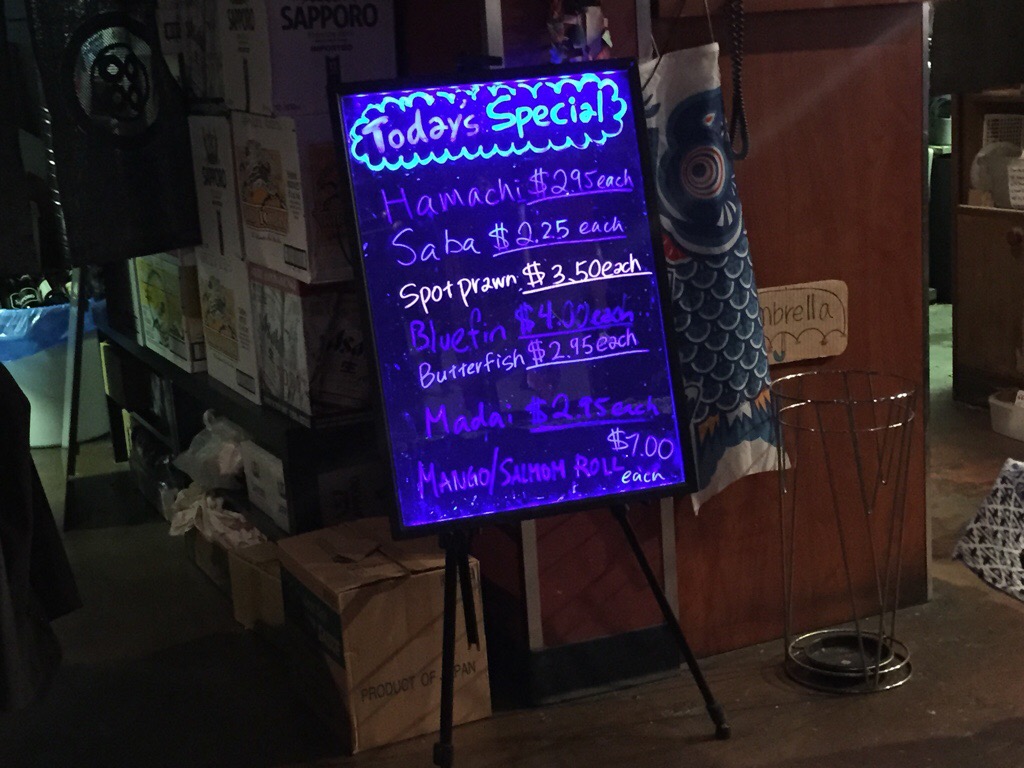 SAPPORO
Today's Special
Hamachi $2.95 each
Saba $2.25 each
Spot prawn $3.50 each
Bluefin $4.00 each
Butterfish $2.95 each
Madai $2.95 each
MANGO/SALMOM ROLL $7.00 each
PRODUCT OF JAPAN